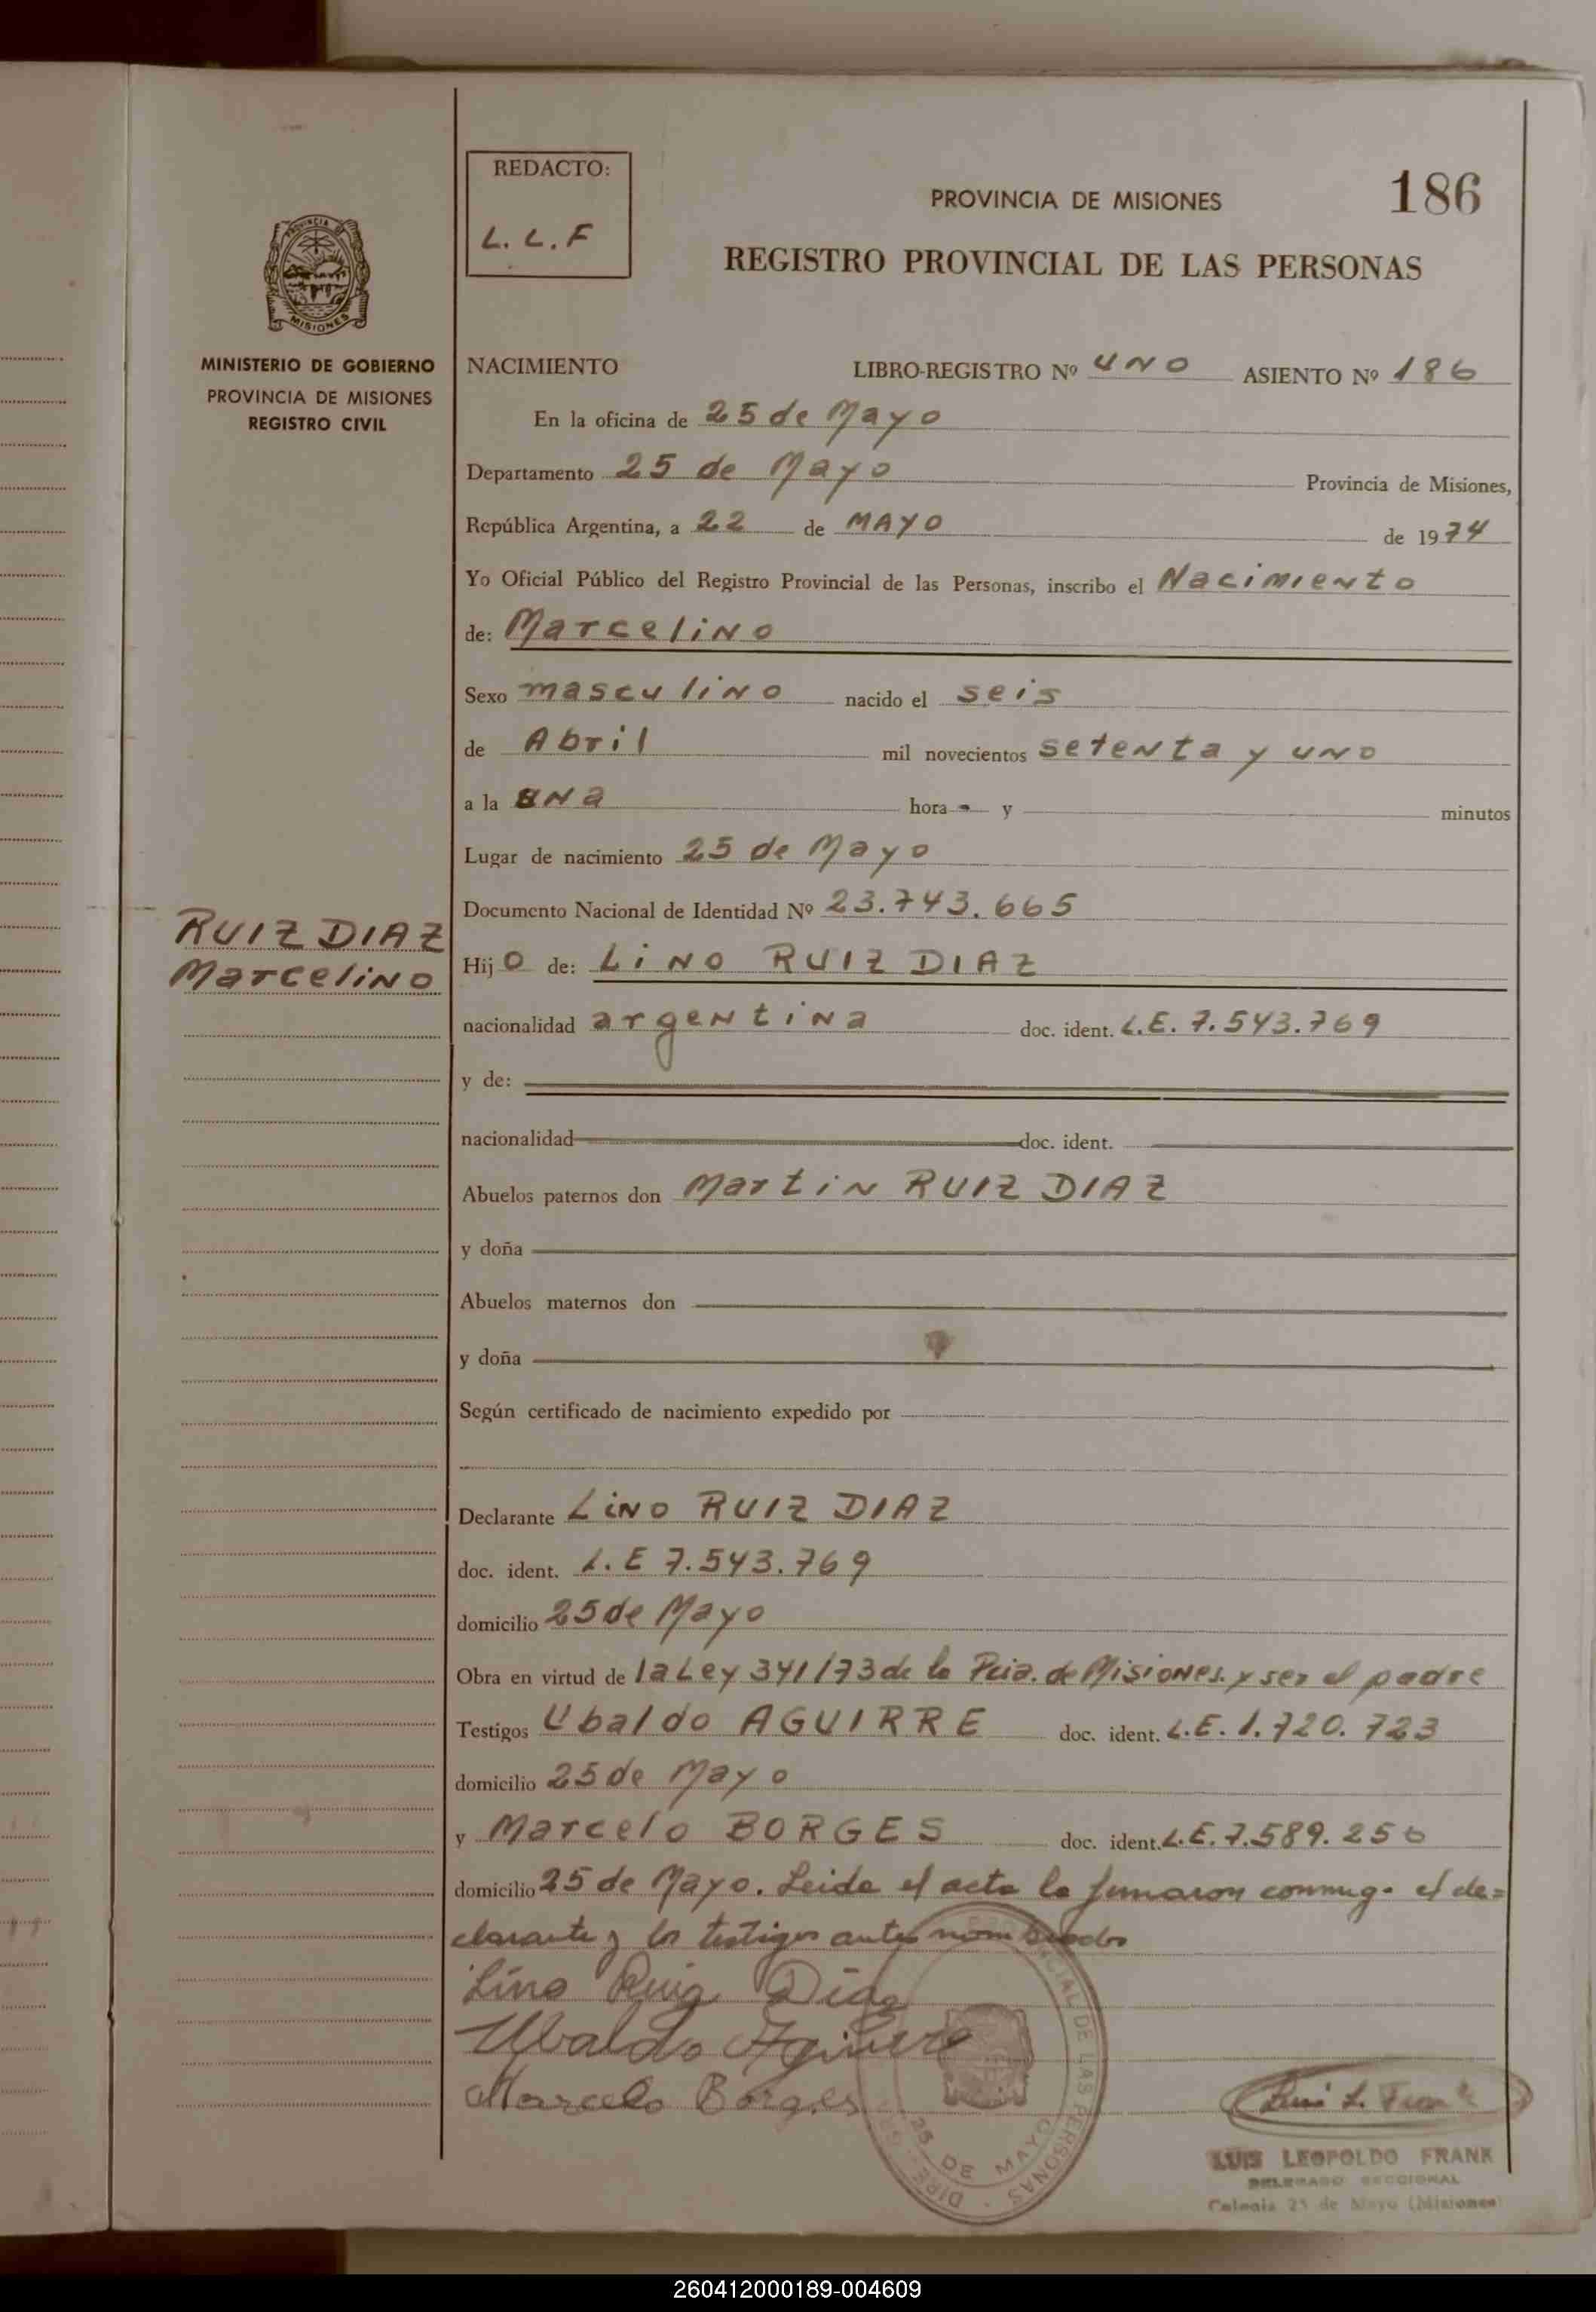 REDACTO:
L. L. F
PROVINCIA DE MISIONES
186
REGISTRO PROVINCIAL DE LAS PERSONAS
PROVINCIA DE
MISIONES
MINISTERIO DE GOBIERNO
PROVINCIA DE MISIONES
REGISTRO CIVIL
NACIMIENTO LIBRO-REGISTRO Nº UNO ASIENTO Nº 186
En la oficina de 25 de Mayo
Departamento 25 de Mayo Provincia de Misiones,
República Argentina, a 22 de MAYO de 1974
Yo Oficial Público del Registro Provincial de las Personas, inscribo el Nacimiento
de: Marcelino
Sexo masculino nacido el seis
de Abril mil novecientos setenta y uno
a la una hora - y minutos
Lugar de nacimiento 25 de Mayo
Documento Nacional de Identidad Nº 23.743.665
RUIZ DIAZ
Marcelino
Hijo de: Lino RUIZ DIAZ
nacionalidad argentina doc. ident. L.E. 7.543.769
y de:
nacionalidad doc. ident.
Abuelos paternos don Martin RUIZ DIAZ
y doña
Abuelos maternos don
y doña
Según certificado de nacimiento expedido por
Declarante Lino RUIZ DIAZ
doc. ident. L.E 7.543.769
domicilio 25 de Mayo
Obra en virtud de la Ley 341/73 de la Pcia. de Misiones. y ser el padre
Testigos Ubaldo AGUIRRE doc. ident. L.E. 1.720.723
domicilio 25 de Mayo
y Marcelo BORGES doc. ident. L.E. 7.589.256
domicilio 25 de Mayo. Leida el acta la firmaron conmigo el de=
clarante y los testigos antes nombrados
Lino Ruiz Diaz
Ubaldo Aguirre
Marcelo Borges
CIAL DE LAS PERSONAS
25 DE MAYO
Luis L. Frank
LUIS LEOPOLDO FRANK
DELEGADO SECCIONAL
Colonia 25 de Mayo (Misiones)
260412000189-004609